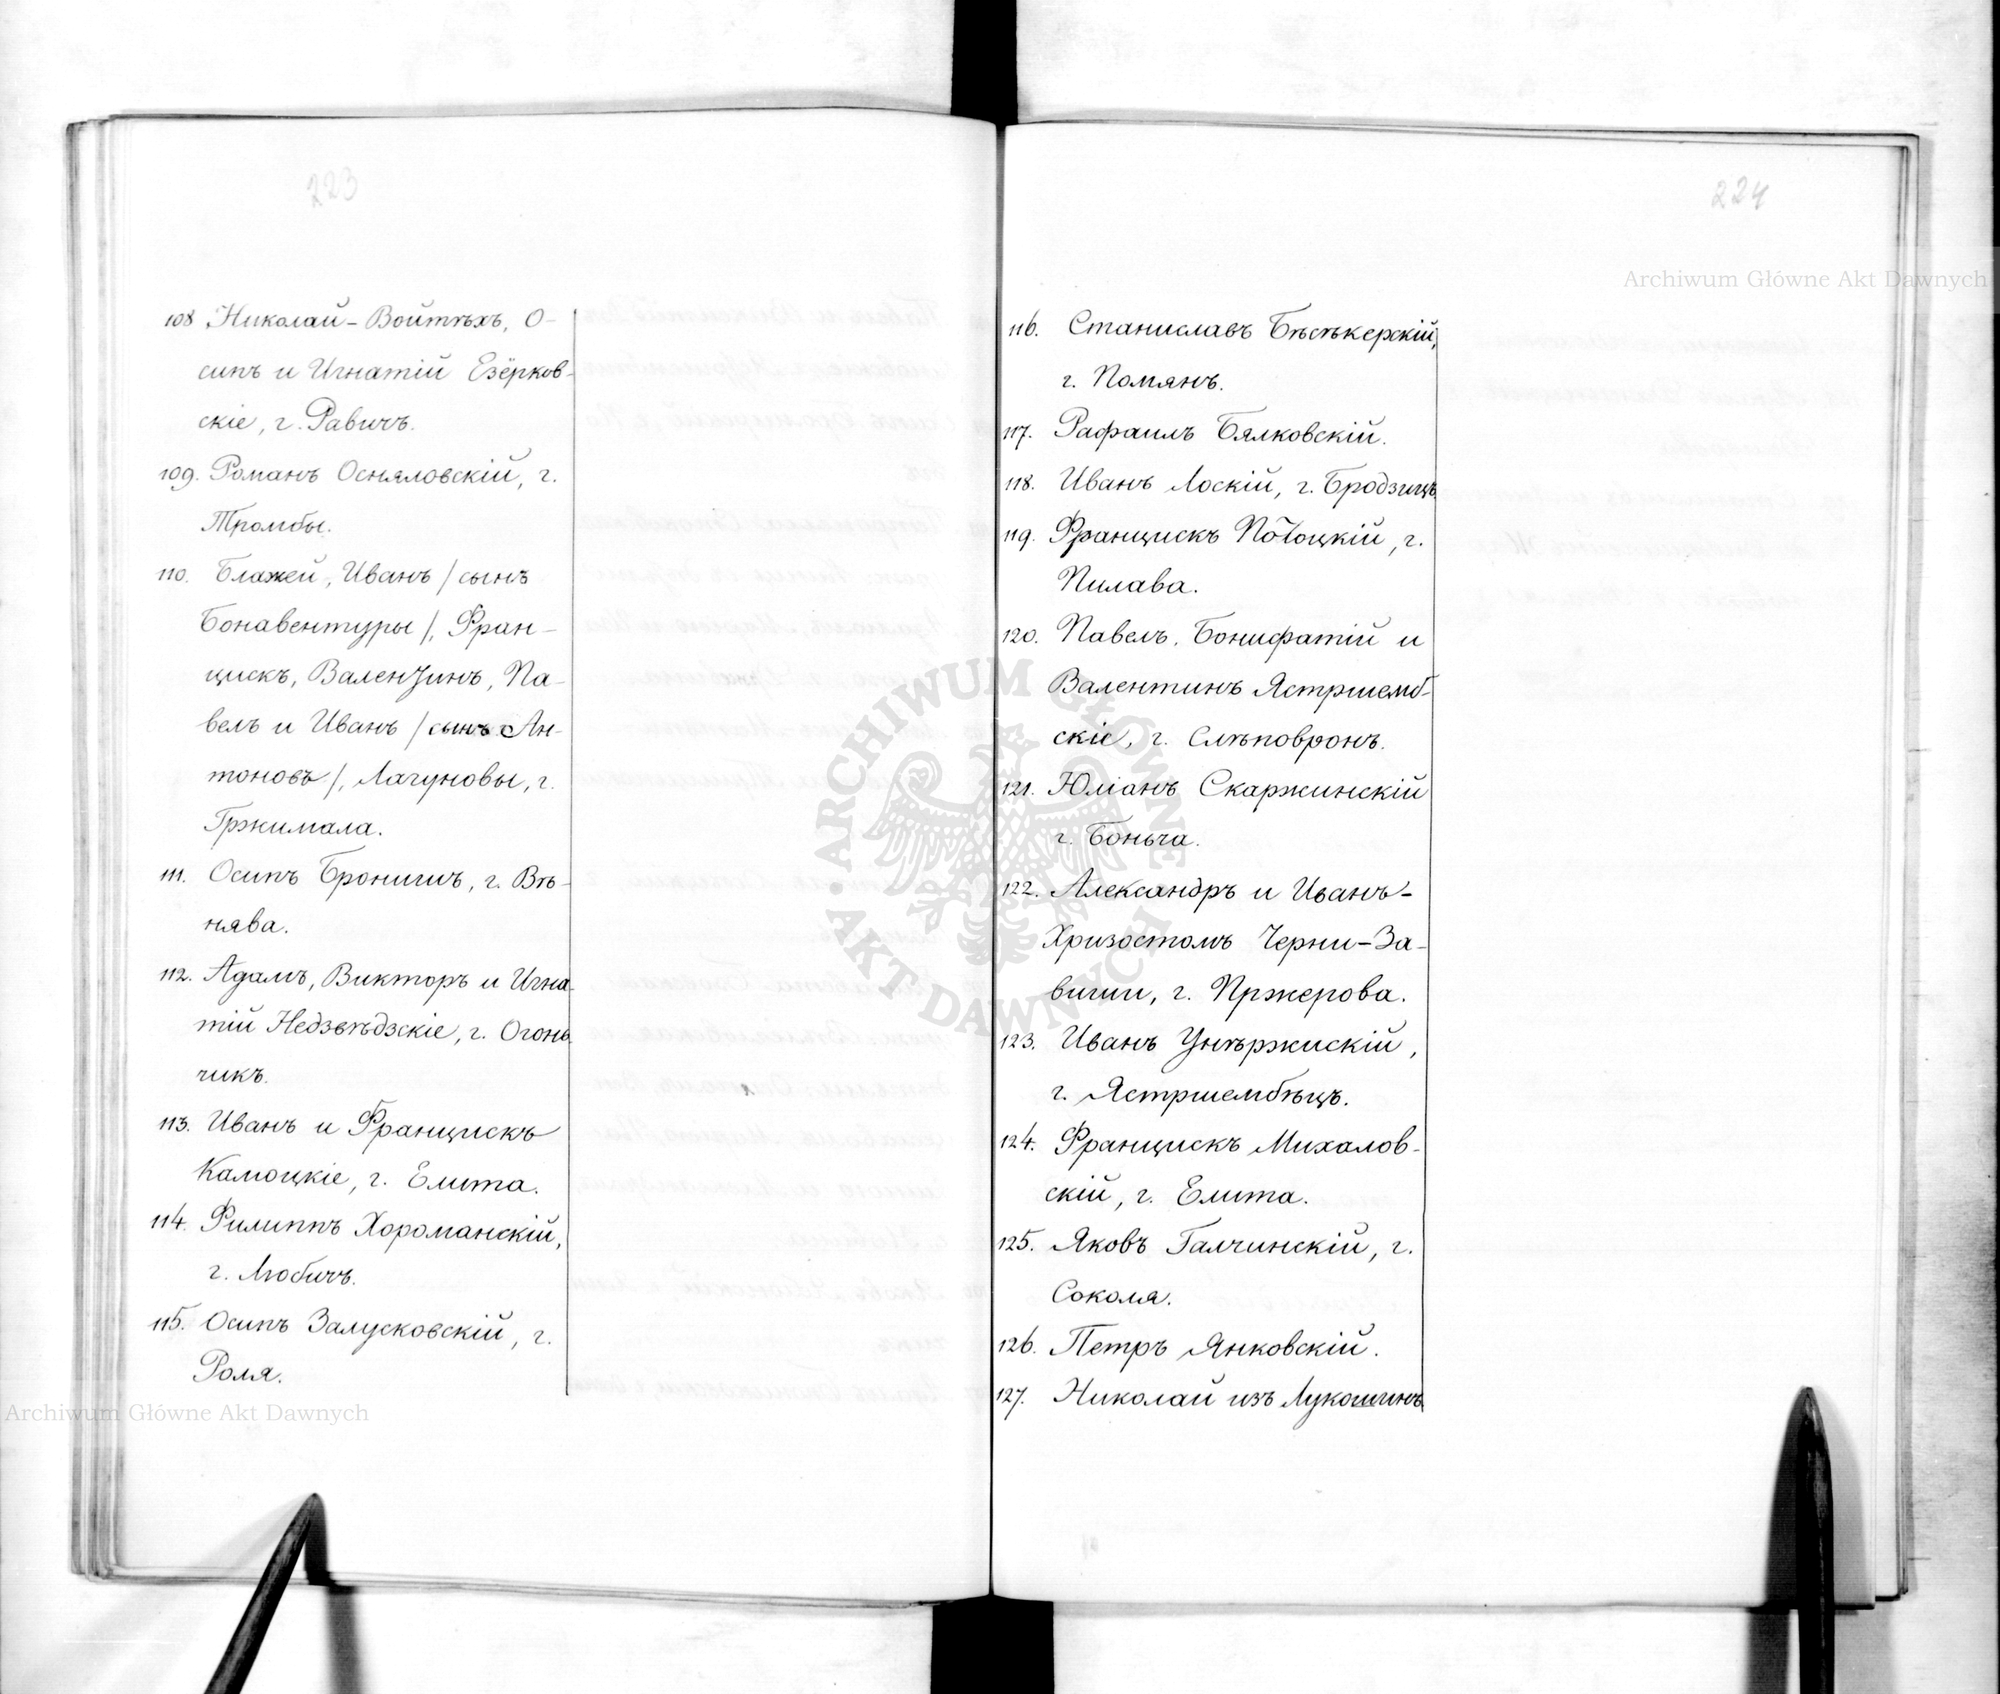 223
108 Николай-Войтѣхъ, О-
сипъ и Игнатій Езёрков-
скіе, г. Равичъ.
109. Романъ Осняловскій, г.
Тромбы.
110. Блажей, Иванъ /сынъ
Бонавентуры/, Фран-
цискъ, Валентинъ, Па-
велъ и Иванъ /сынъ Ан-
тоновъ/, Лагуновы, г.
Гржимала.
111. Осипъ Бронишъ, г. Вѣ-
нява.
112. Адамъ, Викторъ и Игна-
тій Недзвѣдзскіе, г. Огонь-
чикъ.
113. Иванъ и Францискъ
Камоцкіе, г. Елита.
114. Филиппъ Хороманскій,
г. Любичъ.
115. Осипъ Залусковскій, г.
Роля.
224
116. Станиславъ Бѣсѣкерскій,
г. Помянъ.
117. Рафаилъ Бялковскій.
118. Иванъ Лоскій, г. Бродзицъ
119. Францискъ Потоцкій, г.
Пилава.
120. Павелъ, Бонифатій и
Валентинъ Ястршемб-
скіе, г. Слѣповронъ.
121. Юліанъ Скаржинскій
г. Боньча.
122. Александръ и Иванъ-
Хризостомъ Черни-За-
виши, г. Пржерова.
123. Иванъ Унѣржискій,
г. Ястршембѣцъ.
124. Францискъ Михалов-
скій, г. Елита.
125. Яковъ Галчинскій, г.
Сокола.
126. Петръ Янковскій.
127. Николай изъ Лукошинъ
Archiwum Główne Akt Dawnych
Archiwum Główne Akt Dawnych
ARCHIWUM GŁÓWNE AKT DAWNYCH